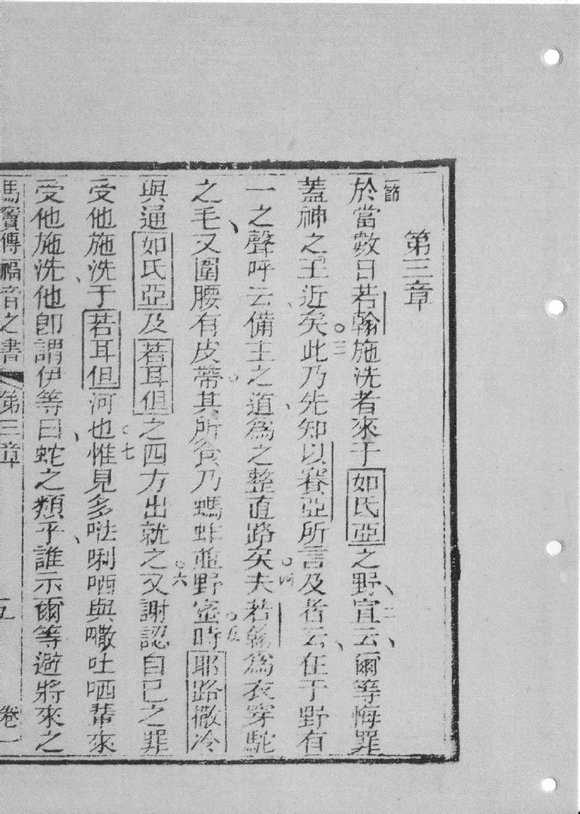 第三章
節
於當數日若翰施洗者來于如氏亞之野宣云爾等悔罪
蓋神之王近矣此乃先知以賽亞所言及者云在于野有
一之聲呼云備主之道為之整直路矣夫若翰為衣穿駝
之毛又圍腰有皮帶其所食乃螞蚱並野蜜時耶路撒冷
與通如氏亞及若耳但之四方出就之又謝認自己之罪
受他施洗于若耳但河也惟見多𠵽唎哂與𠾖吐哂輩來
受他施洗他即謂伊等曰蛇之類乎誰示爾等避將來之
馬竇傳福音之書 第三章 五 卷一
二
三
四
五
六
七